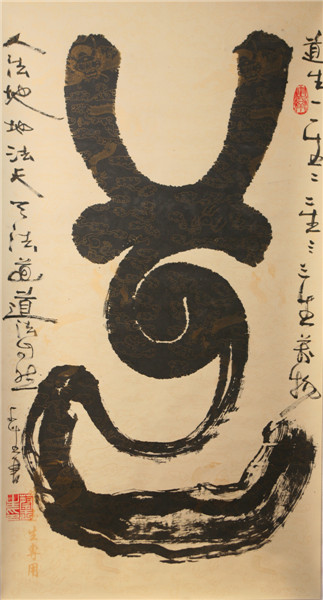 道生一一生二二生三三生萬物
道
人法地地法天天法道道法自然